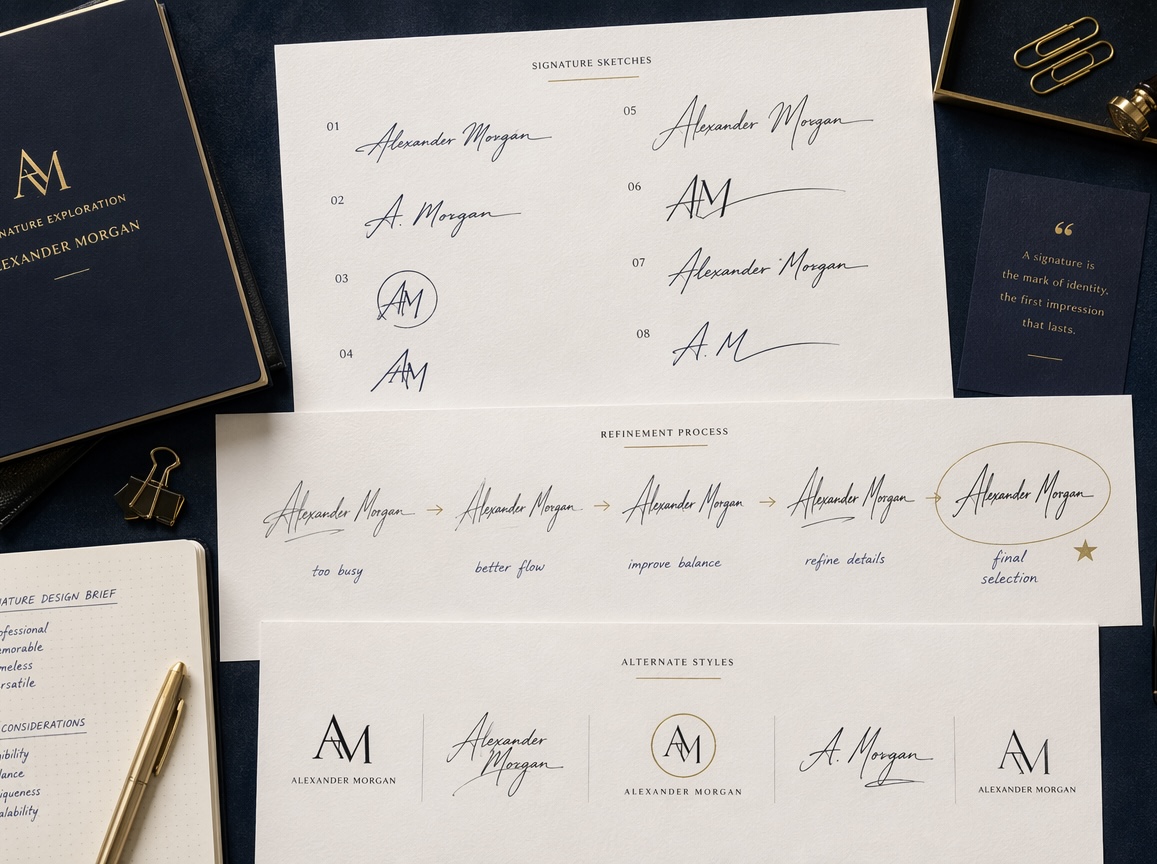 AM
NATURE EXPLORATION
EXANDER MORGAN
SIGNATURE SKETCHES
01
Alexander Morgan
02
A. Morgan
03
AM
04
AM
05
Alexander Morgan
06
AM
07
Alexander Morgan
08
A. M
“
A signature is
the mark of identity,
the first impression
that lasts.
REFINEMENT PROCESS
Alexander Morgan
Alexander Morgan
Alexander Morgan
Alexander Morgan
Alexander Morgan
too busy
better flow
improve balance
refine details
final
selection
NATURE DESIGN BRIEF
ofessional
emorable
meless
rsatile
CONSIDERATIONS
ibility
lance
iqueness
alability
ALTERNATE STYLES
AM
ALEXANDER MORGAN
Alexander
Morgan
AM
ALEXANDER MORGAN
A. Morgan
AM
ALEXANDER MORGAN